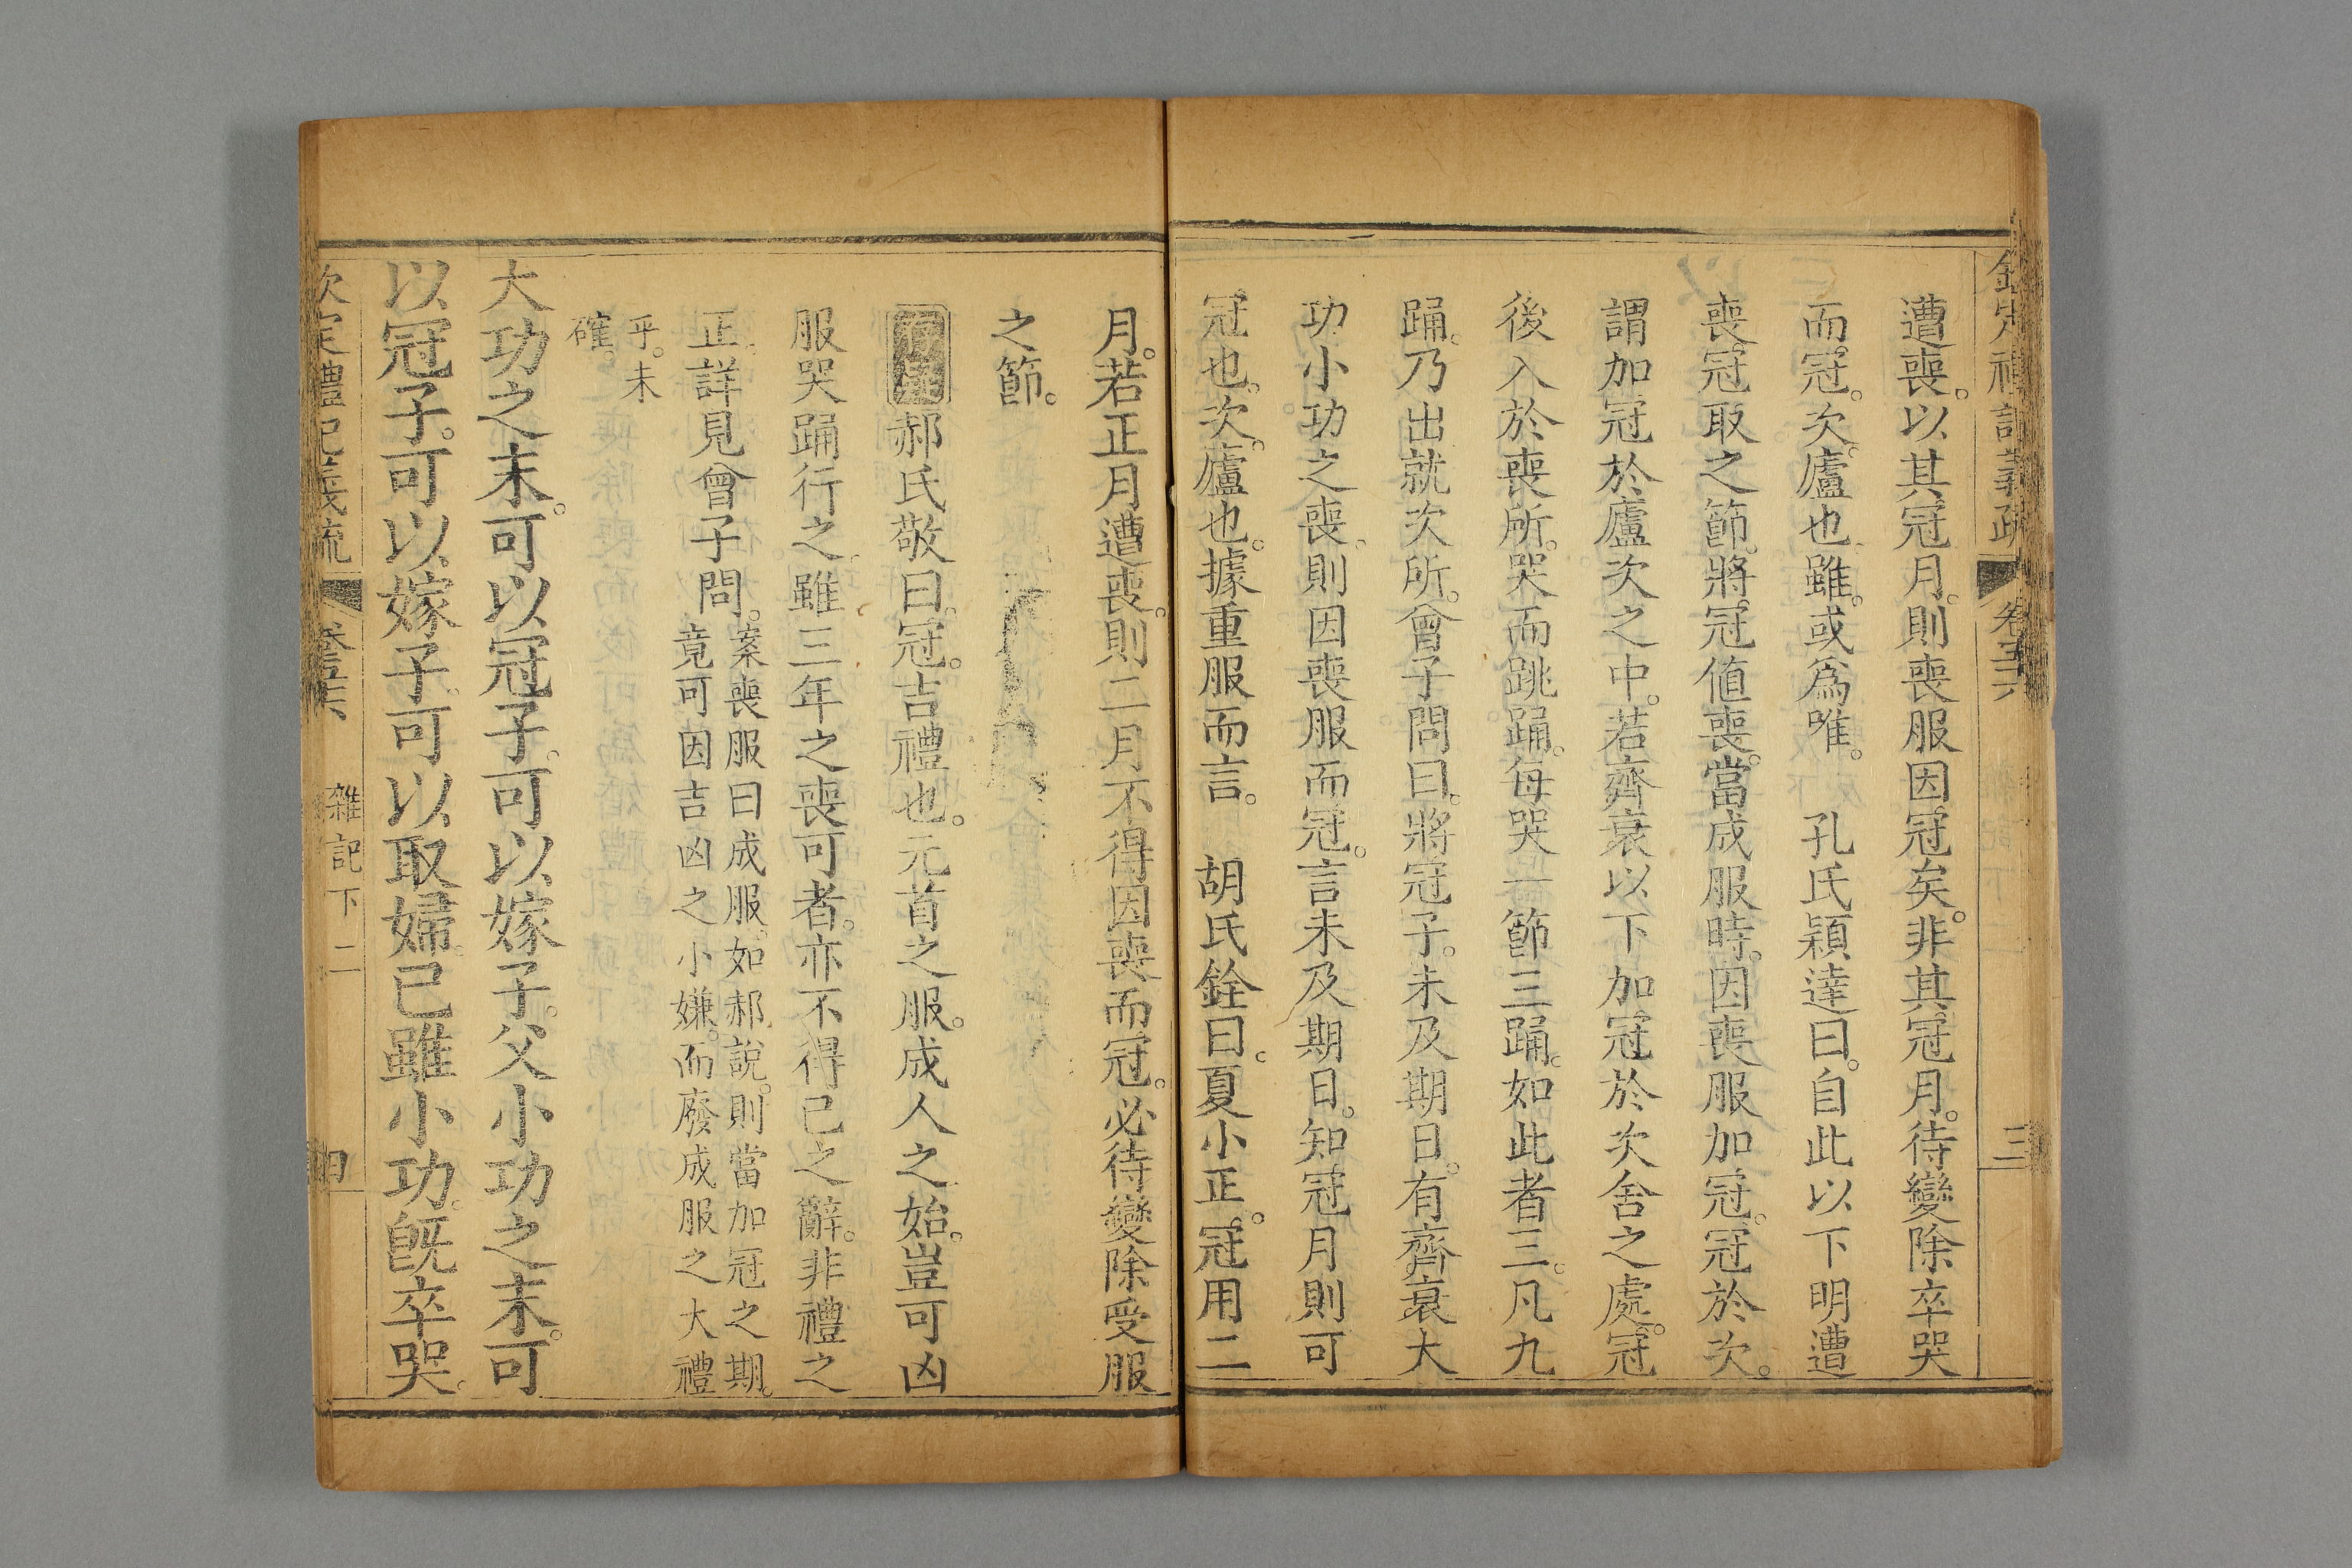 遭喪。以其冠月。則喪服因冠矣。非其冠月。待變除卒哭
而冠。次。廬也。雖。或爲唯。　孔氏穎達曰。自此以下明遭
喪冠取之節。將冠值喪。當成服時。因喪服加冠。冠於次。
謂加冠於廬次之中。若齊衰以下加冠於次舍之處。冠
後入於喪所。哭而跳踊。每哭一節三踊。如此者三。凡九
踊。乃出就次所。曾子問曰。將冠子。未及期日。有齊衰大
功小功之喪。則因喪服而冠。言未及期日。知冠月則可
冠也。次。廬也。據重服而言。　胡氏銓曰。夏小正。冠用二
三
月。若正月遭喪。則二月不得因喪而冠。必待變除受服
之節。
郝氏敬曰。冠。吉禮也。元首之服。成人之始。豈可凶
服哭踊行之。雖三年之喪可者。亦不得已之辭。非禮之
正。詳見曾子問。案喪服曰成服。如郝說。則當加冠之期。
竟可因吉凶之小嫌。而廢成服之大禮
乎。未
確。
大功之末。可以冠子。可以嫁子。父小功之末。可
以冠子。可以嫁子。可以取婦。己雖小功。既卒哭。
欽定禮記義疏　卷五十六　雜記下二　四